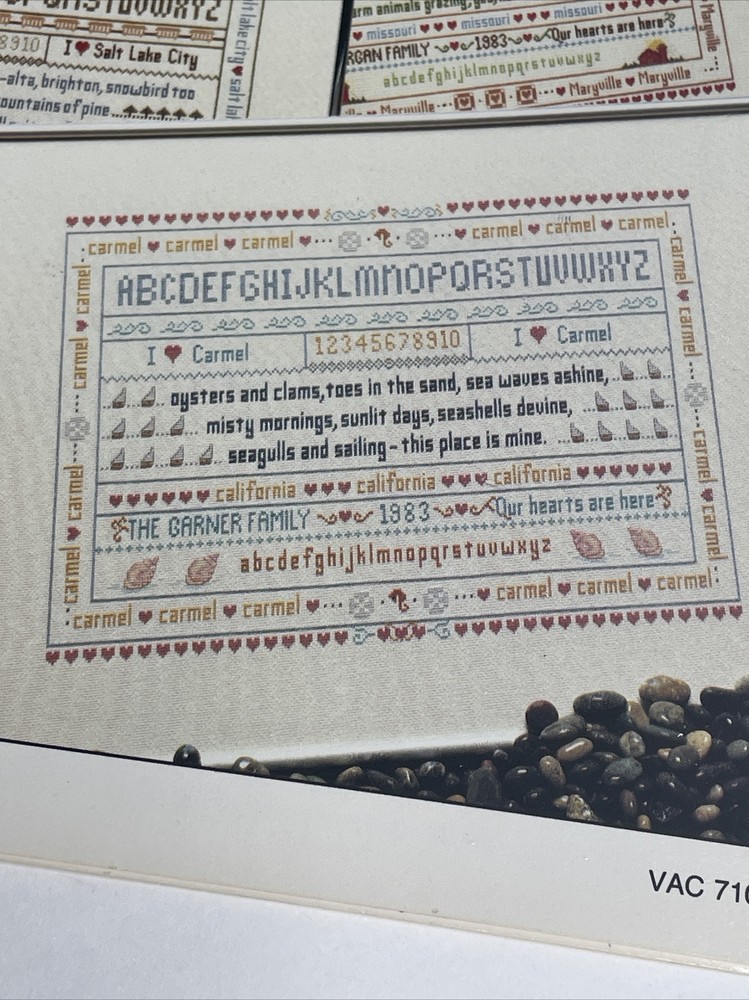 I ♥ Salt Lake City
-alta, brighton, snowbird too
ountains of pine
lt lake city ♥ salt la
arm animals grazing,
♥ missouri ♥ ♥ ♥ missouri ♥ ♥ ♥ missouri
RGAN FAMILY 1983 Our hearts are here
abcdefghijklmnopqrstuvwxyz
Maryville ♥ Maryville ♥ Maryville
Maryville
carmel ♥ carmel ♥ carmel ♥ ♥ carmel ♥ carmel ♥ carmel
ABCDEFGHIJKLMNOPQRSTUVWXYZ
I ♥ Carmel 12345678910 I ♥ Carmel
oysters and clams, toes in the sand, sea waves ashine,
misty mornings, sunlit days, seashells devine,
seagulls and sailing - this place is mine.
♥♥♥♥♥♥ california ♥♥♥ california ♥♥♥ california ♥♥♥♥♥♥
THE GARNER FAMILY 1983 Our hearts are here
abcdefghijklmnopqrstuvwxyz
carmel ♥ carmel ♥ carmel ♥ ♥ carmel ♥ carmel ♥ carmel
carmel ♥ carmel
carmel ♥ carmel
carmel ♥ carmel
carmel ♥ carmel
VAC 710